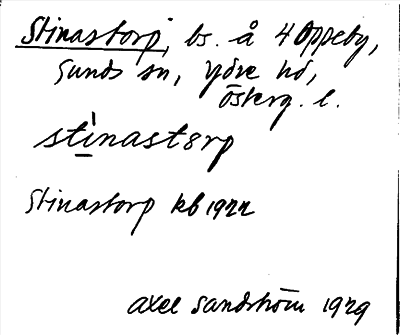 Stinastorp, bs. å 4 Oppeby,
Sunds sn, Ydre hd,
Österg. l.
stinastɜrp
Stinastorp kb 1922
Axel Sandström 1929